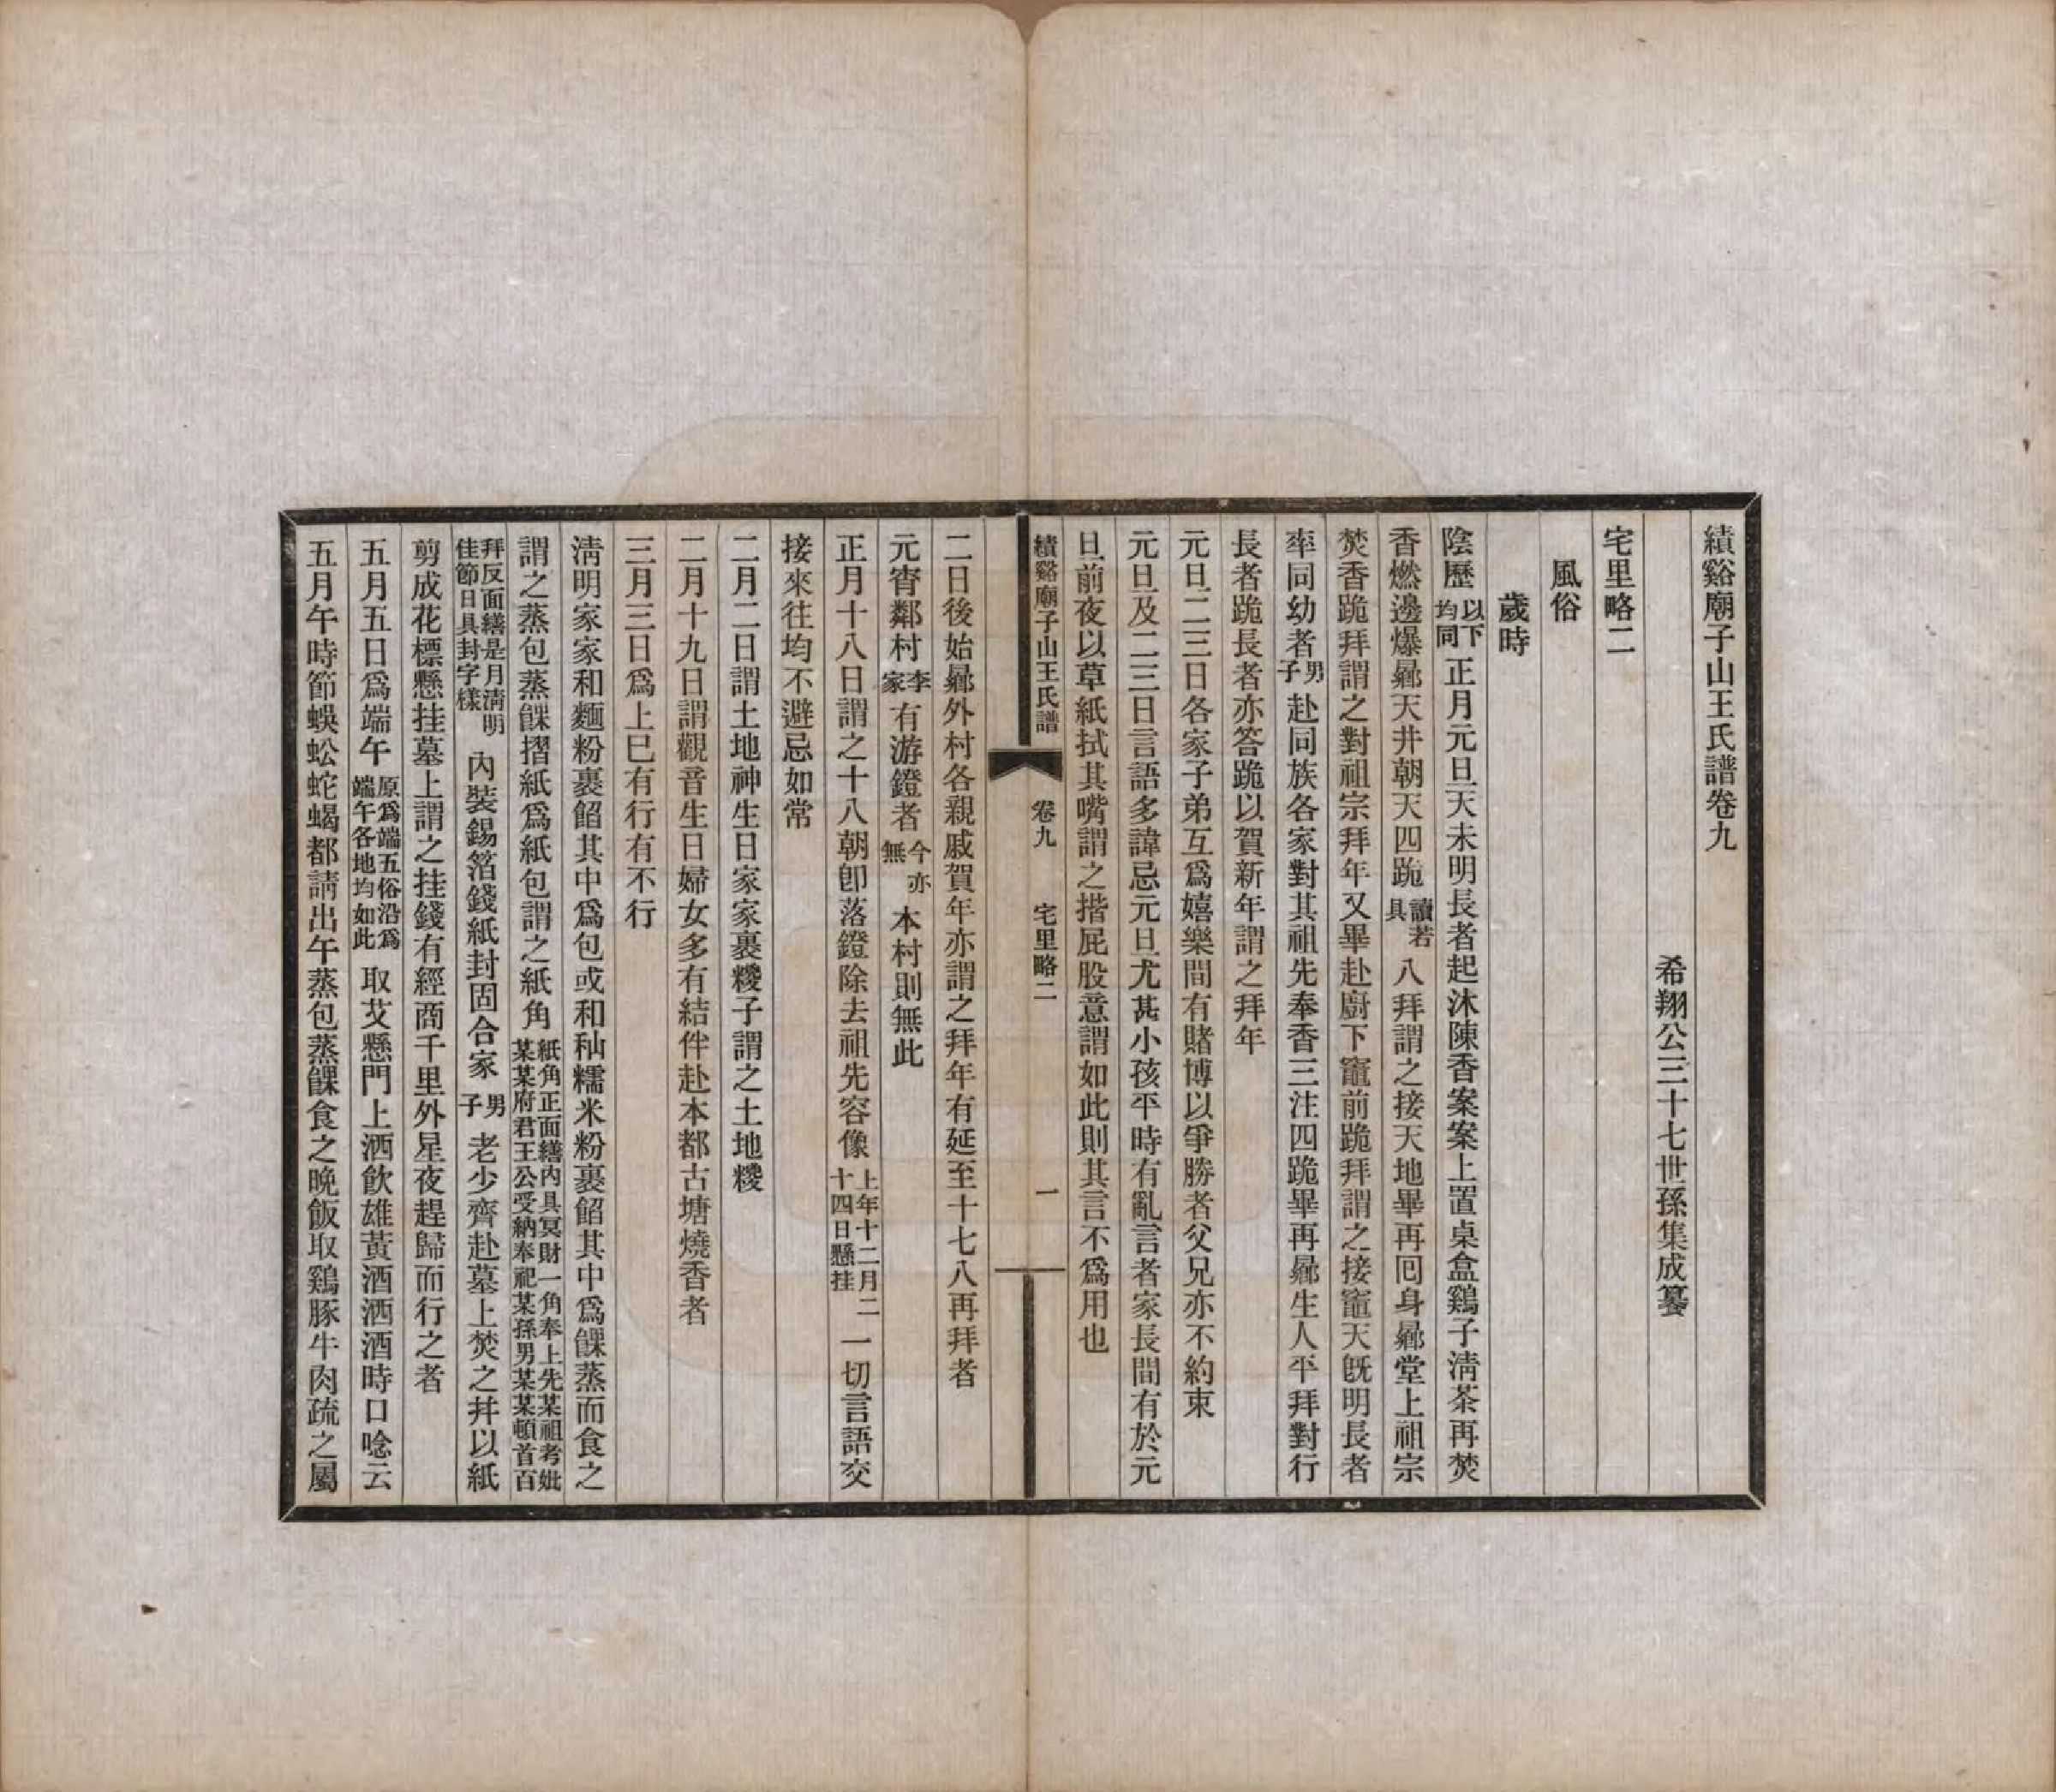 績谿廟子山王氏譜卷九
希翔公三十七世孫集成纂
宅里略二
風俗
歲時
陰歷以下均同正月元旦天未明長者起沐陳香案案上置桌盒鷄子淸茶再焚
香燃邊爆曏天井朝天四跪讀若具八拜謂之接天地畢再囘身曏堂上祖宗
焚香跪拜謂之對祖宗拜年又畢赴廚下竈前跪拜謂之接竈天旣明長者
率同幼者男子赴同族各家對其祖先奉香三注四跪畢再曏生人平拜對行
長者跪長者亦答跪以賀新年謂之拜年
元旦二三日各家子弟互爲嬉樂間有賭博以爭勝者父兄亦不約束
元旦及二三日言語多諱忌元旦尤甚小孩平時有亂言者家長間有於元
旦前夜以草紙拭其嘴謂之揩屁股意謂如此則其言不爲用也
績谿廟子山王氏譜 卷九 宅里略二 一
二日後始曏外村各親戚賀年亦謂之拜年有延至十七八再拜者
元宵鄰村李家有游鐙者今亦無本村則無此
正月十八日謂之十八朝卽落鐙除去祖先容像上年十二月二十四日懸挂一切言語交
接來往均不避忌如常
二月二日謂土地神生日家家裹糉子謂之土地糉
二月十九日謂觀音生日婦女多有結伴赴本都古塘燒香者
三月三日爲上巳有行有不行
淸明家家和麵粉裹餡其中爲包或和秈糯米粉裹餡其中爲餜蒸而食之
謂之蒸包蒸餜摺紙爲紙包謂之紙角紙角正面繕內具冥財一角奉上先某祖考妣某某府君王公受納奉祀某孫男某某頓首百
拜反面繕是月淸明佳節日具封字樣內裝錫箔錢紙封固合家男子老少齊赴墓上焚之幷以紙
剪成花標懸挂墓上謂之挂錢有經商千里外星夜趕歸而行之者
五月五日爲端午原爲端五俗沿爲端午各地均如此取艾懸門上洒飮雄黃酒洒酒時口唸云
五月午時節蜈蚣蛇蝎都請出午蒸包蒸餜食之晚飯取鷄豚牛肉疏之屬